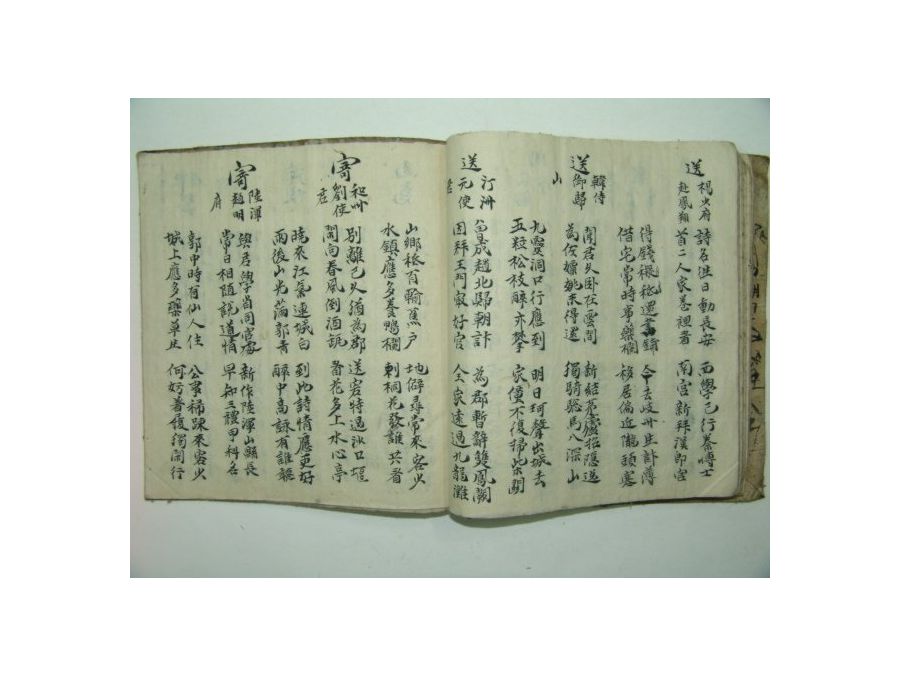 送 楊少府
赴鳳翔
詩名往日動長安 西學已行秦博士
首二人家卷裡看 南宮新拜漢郎官
得錢秖還書鋪 今去岐州生計薄
借宅常時事藥欄 移居偏近隴頭寒
送 韓侍
御歸
山
聞君久臥在雲間 新結茅廬招隱逸
為佐嫖姚未得還 獨騎驄馬入深山
九靈洞口行應到 明日珂聲出城去
五粒松枝醉亦攀 家僮不復掃柴關
送 汀洲
元使
君
曾成趙北歸朝計 為郡暫辭雙鳳闕
因拜王門最好官 全家遠過九龍灘
山鄉秖有輸蕉戶 地僻尋常來客少
水鎮應多養鴨欄 刺桐花發誰共看
寄 和州
劉使
君
別離已久猶為郡 送客特過沙口堰
閑向春風倒酒瓶 看花多上水心亭
曉來江氣連城白 到此詩情應更好
雨後山光滿郭青 醉中高詠有誰聽
寄 陸渾
趙明
府
與君學省同官處 新作陸渾山縣長
常日相隨說道情 早知三禮甲科名
郭中時有仙人住 公事稀踈來客少
城上應多藥草生 何妨著屐獨閑行